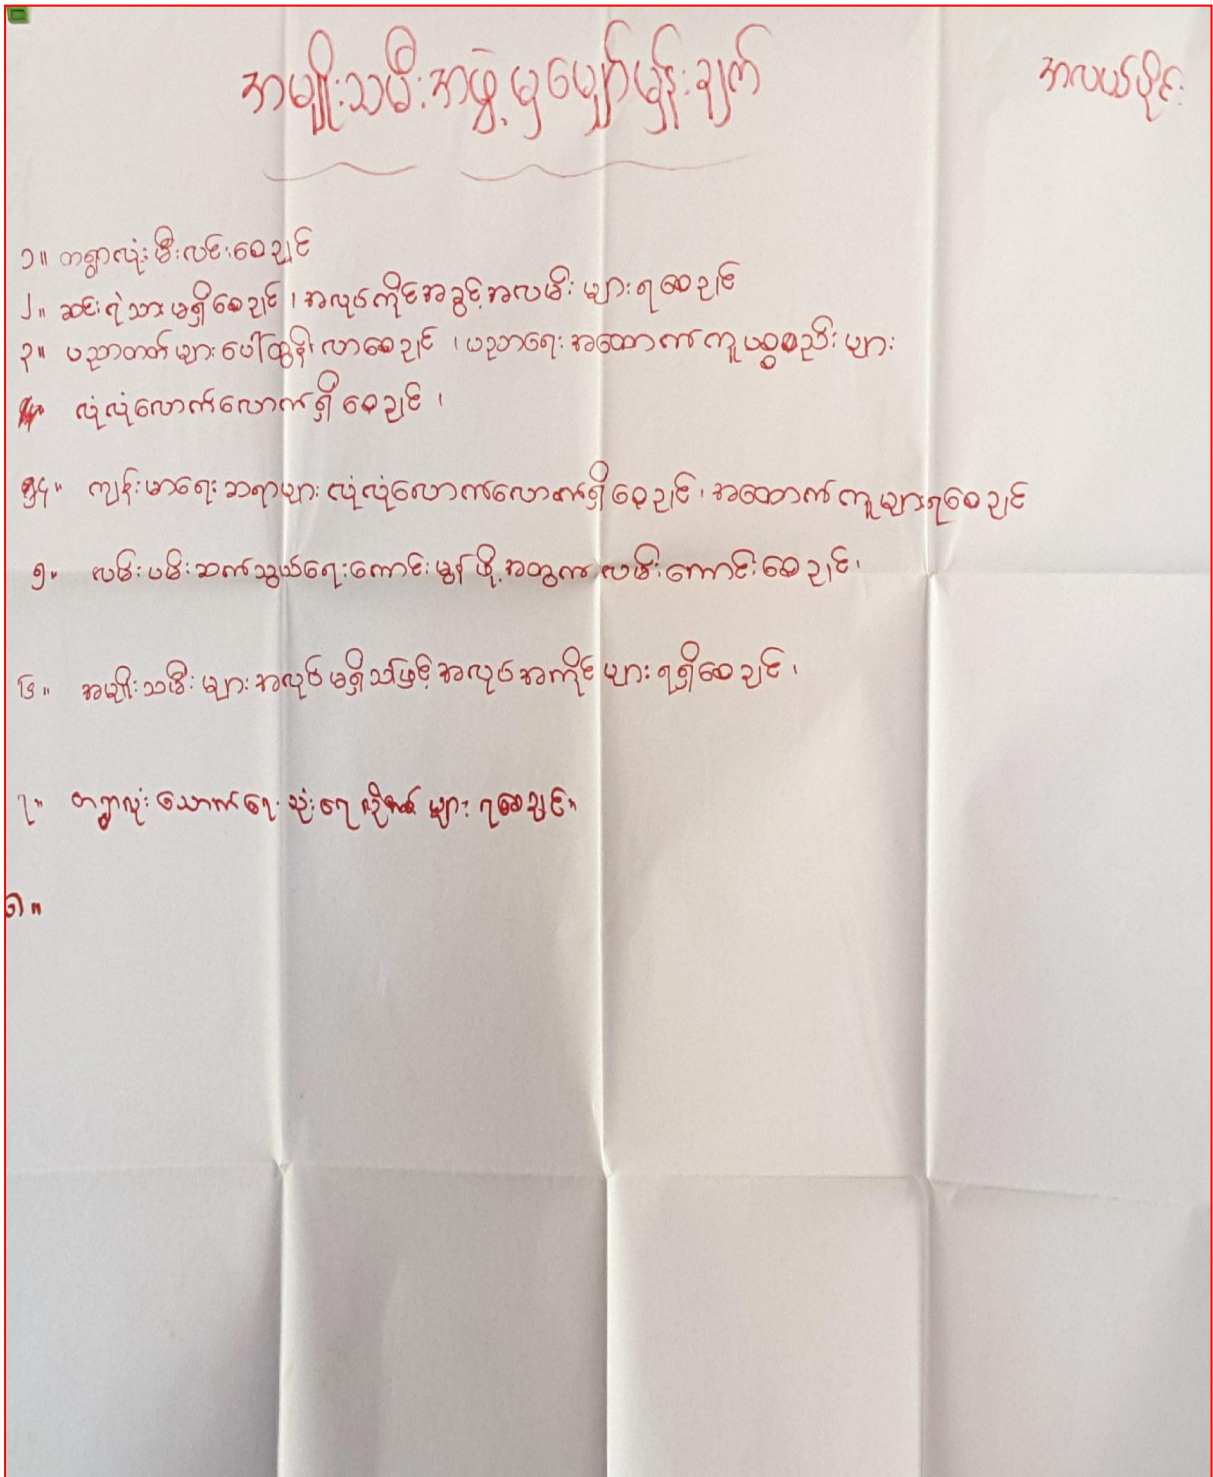 အမျိုးသမီးအဖွဲ့မှမျှော်မှန်းချက်
အလယ်ပိုင်း
၁။ တရွာလုံးမီးလင်းစေချင်
၂။ ဆင်းရဲသားမရှိစေချင်၊ အလုပ်ကိုင်အခွင့်အလမ်းများရစေချင်
၃။ ပညာတတ်များပေါ်ထွန်းလာစေချင်၊ ပညာရေးအထောက်ကူပစ္စည်းများ
လုံလုံလောက်လောက်ရှိစေချင်၊
၄။ ကျန်းမာရေးဆရာများလုံလုံလောက်လောက်ရှိစေချင်၊ အထောက်ကူများရစေချင်
၅။ လမ်းပမ်းဆက်သွယ်ရေးကောင်းမွန်ဖို့အတွက်လမ်းကောင်းစေချင်၊
၆။ အမျိုးသမီးများအလုပ်မရှိသဖြင့်အလုပ်အကိုင်များရရှိစေချင်၊
၇။ တရွာလုံးသောက်ရေသုံးရေ များရစေချင်။
၈။